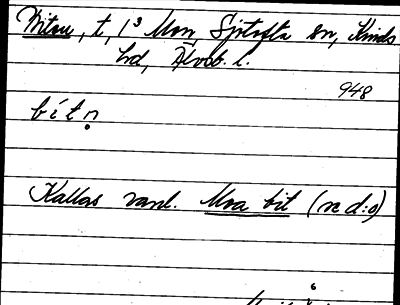 Biten, t, 1³ Mon, Sjötofta sn, Kinds
hd, Älvsb. l.
948
bítn̥
Kallas vanl. Moa bit (n d:o)